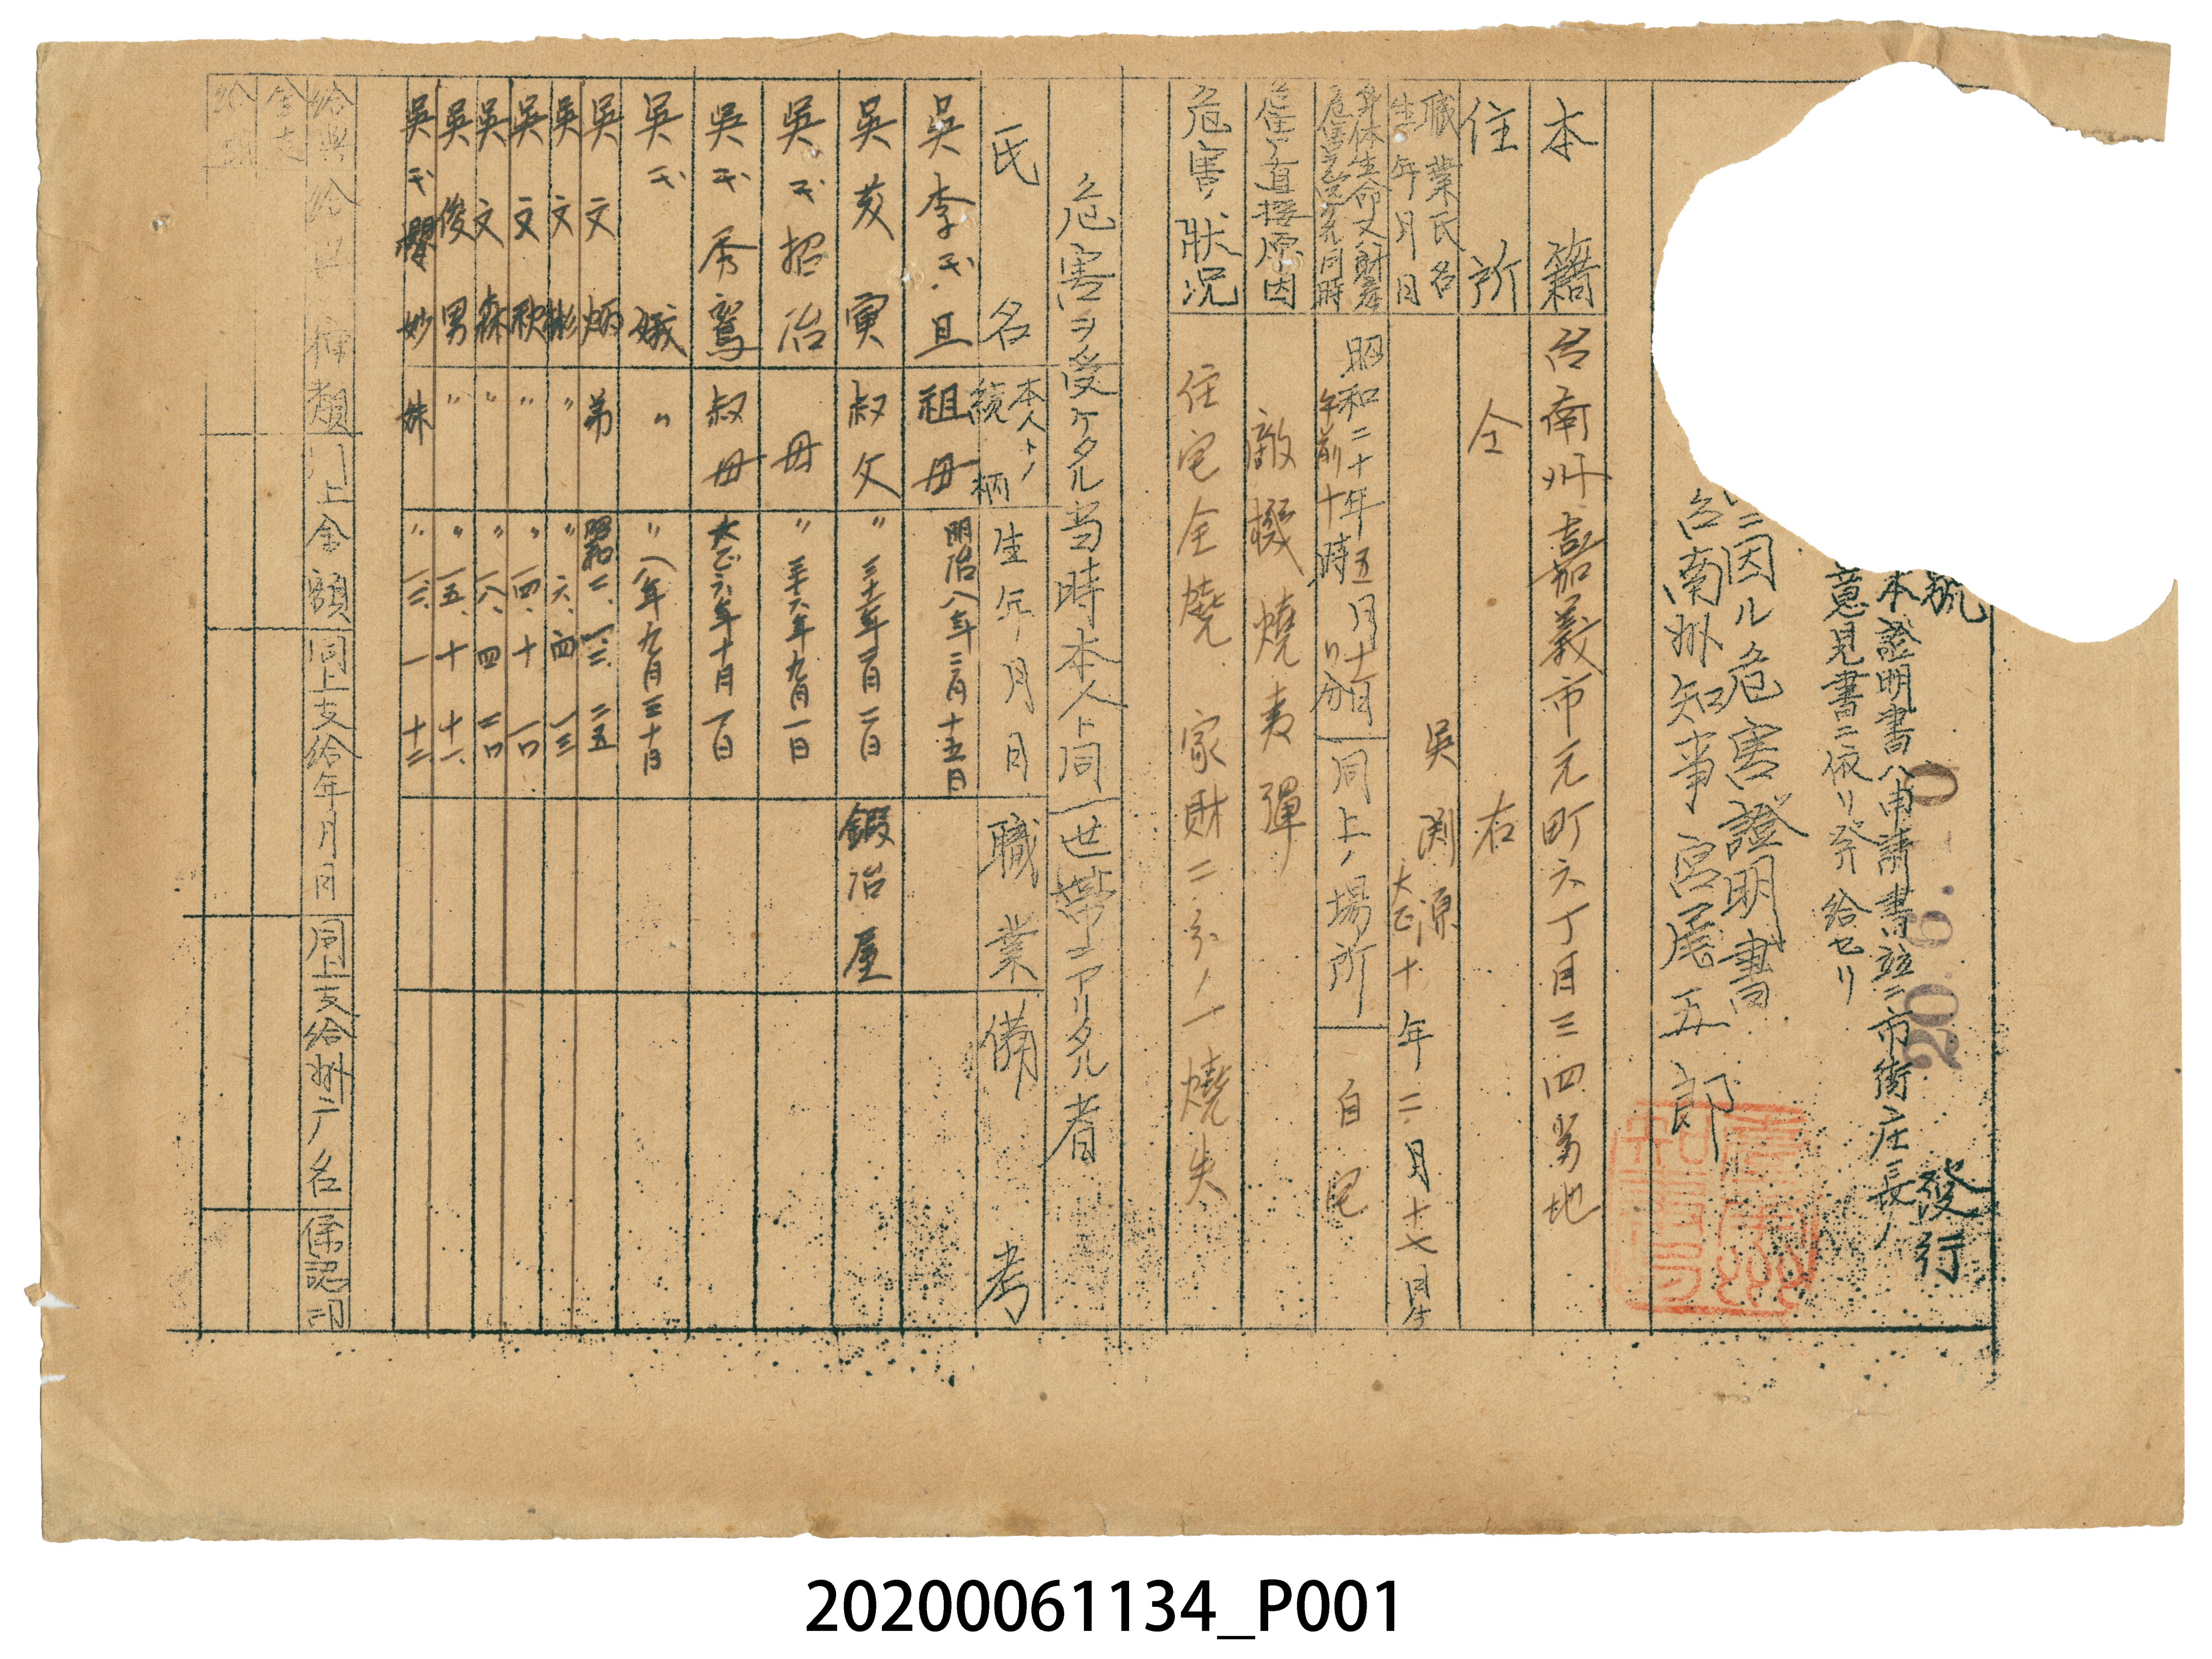 號
發行
20. 6.
本證明書ハ申請書竝ニ市街庄長ノ
意見書ニ依リ発給セリ
ニ因ル危害證明書
台南州知事宮尾五郎
本籍 台南州嘉義市元町六丁目三四番地
住所 仝右
職業氏名 吳渕源
生年月日 大正十年二月十七日生
身体生命又ハ財産
危害ヲ受ケタル同時 昭和二十年五月十一日 午前十時〃分 同上ノ場所 自宅
直接原因 敵機燒夷彈
危害ノ狀況 住宅全燒 家財二分ノ一燒失
危害ヲ受ケタル当時本人ト同一世帯ニアリタル者
氏名 本人トノ続柄 生年月日 職業 備考
吳李氏且 祖母 明治八年二月十五日
吳亥寅 叔父 〃 鍛冶屋
吳氏招治 母 〃三十六年九月一日
吳氏秀鴛 叔母 大正六年十月一日
吳氏娥 〃 〃八年九月三十日
吳文炳 弟 昭和二、一二、二五
吳文彬 〃 〃六、四、一三
吳文秋 〃 〃一四、十、一〇
吳文森 〃 〃一八、四、二〇
吳俊男 〃 〃一五、十、十一
吳氏櫻妙 妹 〃一三、一、十二
給與給与種類 同上金額 同上支給年月日 同上支給州廳名 係認印
20200061134_P001